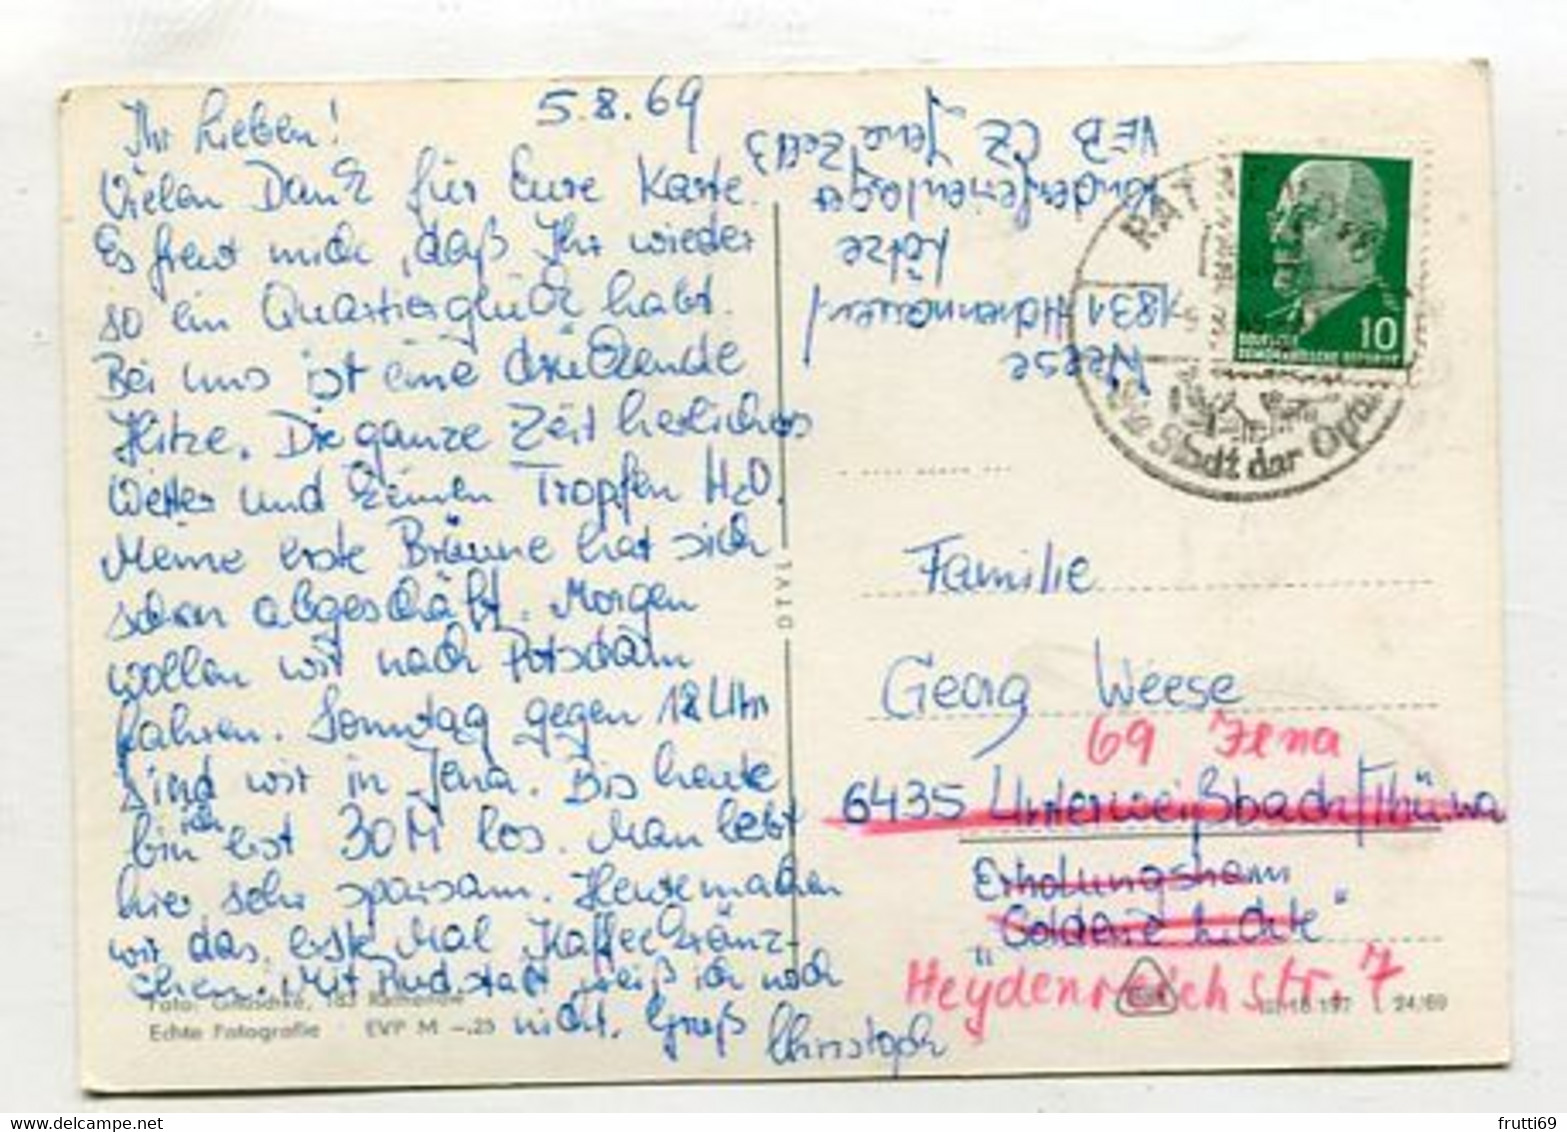 5.8.69
Ihr Lieben!
Vielen Dank für Eure Karte.
Es freut mich, daß Ihr wieder
so ein Quartierglück habt.
Bei uns ist eine drückende
Hitze. Die ganze Zeit herliches
Wetter und keinen Tropfen H2O.
Meine erste Bräune hat sich
schon abgeschält. Morgen
wollen wir nach Potsdam
fahren. Sonntag gegen 12 Uhr
sind wir in Jena. Bis heute
bin ich erst 30M los. Man lebt
hier sehr sparsam. Heute machen
wir das erste Mal Kaffeekränz-
chen. Mit Rudstadt weiß ich noch
nicht. Gruß Christoph
Foto: 183 Rathenow
Echte Fotografie EVP M -.25
DTVL
Weese
1831 Hohennauen
Lötze
Kinderferienlager
VEB CZ Jena
RAT
Die Stadt der Optik
10
DEUTSCHE
DEMOKRATISCHE REPUBLIK
Familie
Georg Weese
69 Jena
6435 Unterweißbach/Thür.
Erholungsheim
"Goldene Lichte"
Heydenreichstr. 7
24/69
frutti69